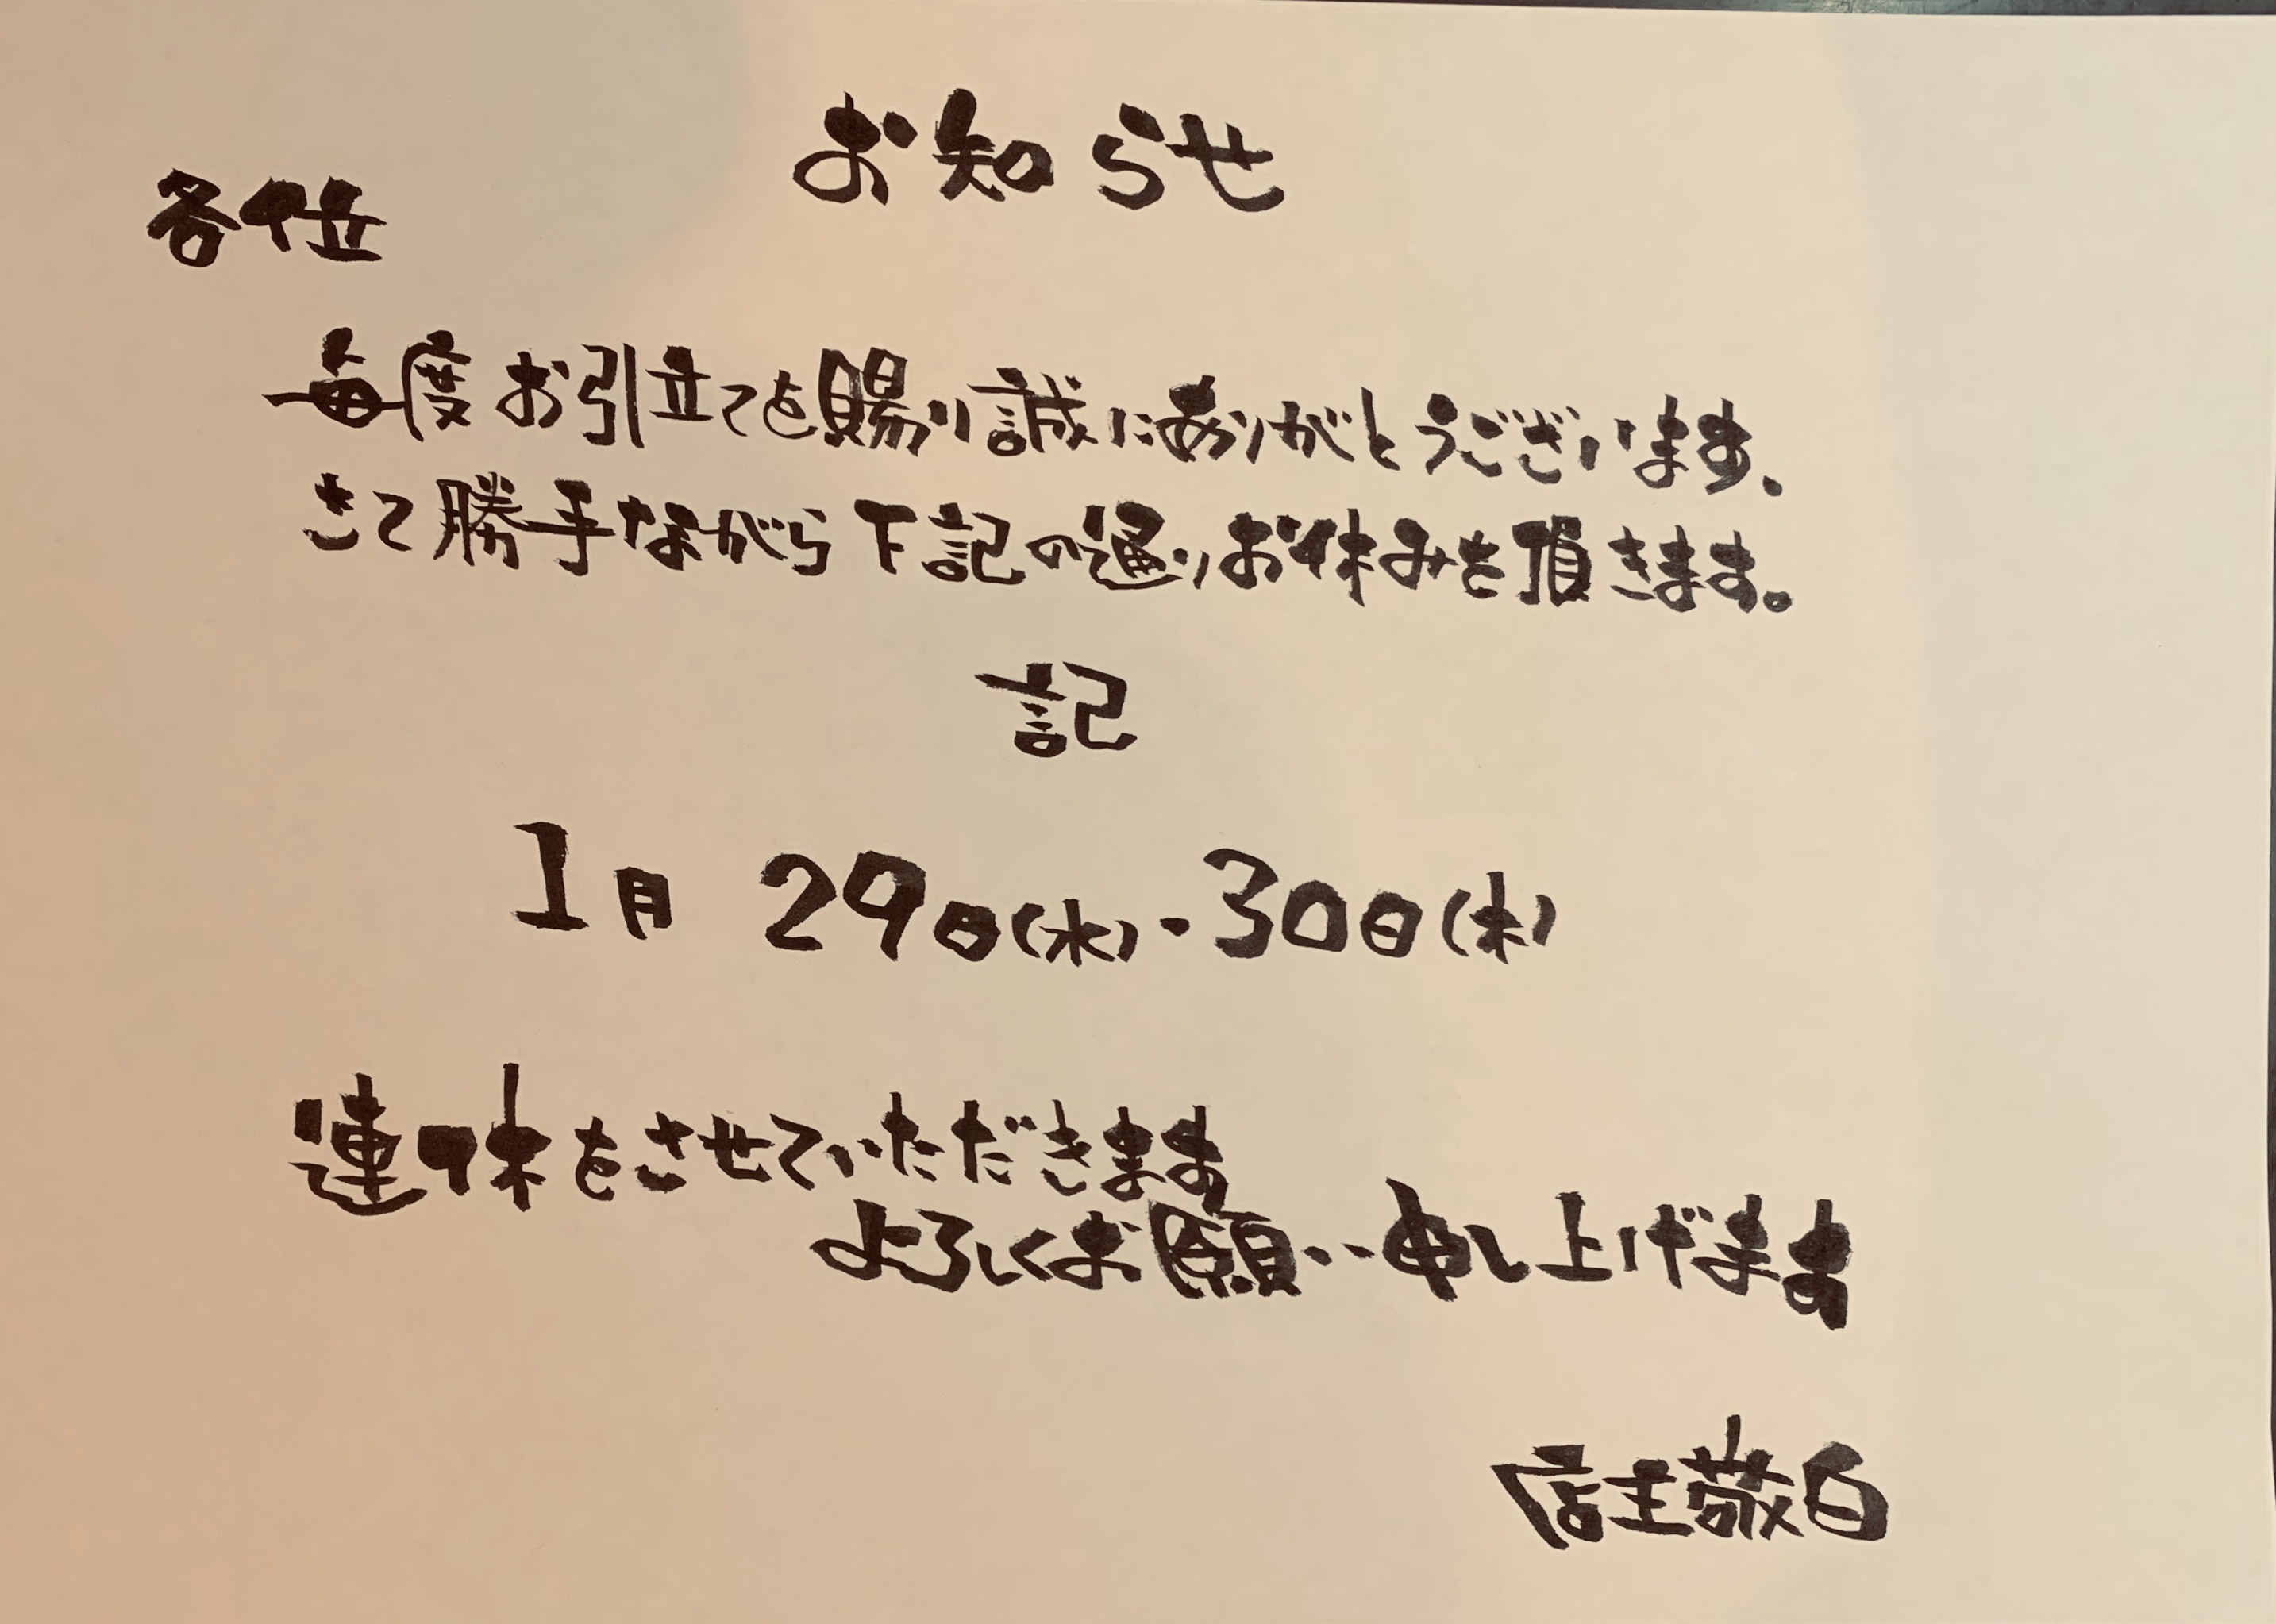 お知らせ
各位
毎度お引立てを賜り誠にありがとうございます、
さて勝手ながら下記の通りお休みを頂きます。
記
1月 29日(水)・30日(木)
連休をさせていただきます
よろしくお願い申し上げます
店主敬白